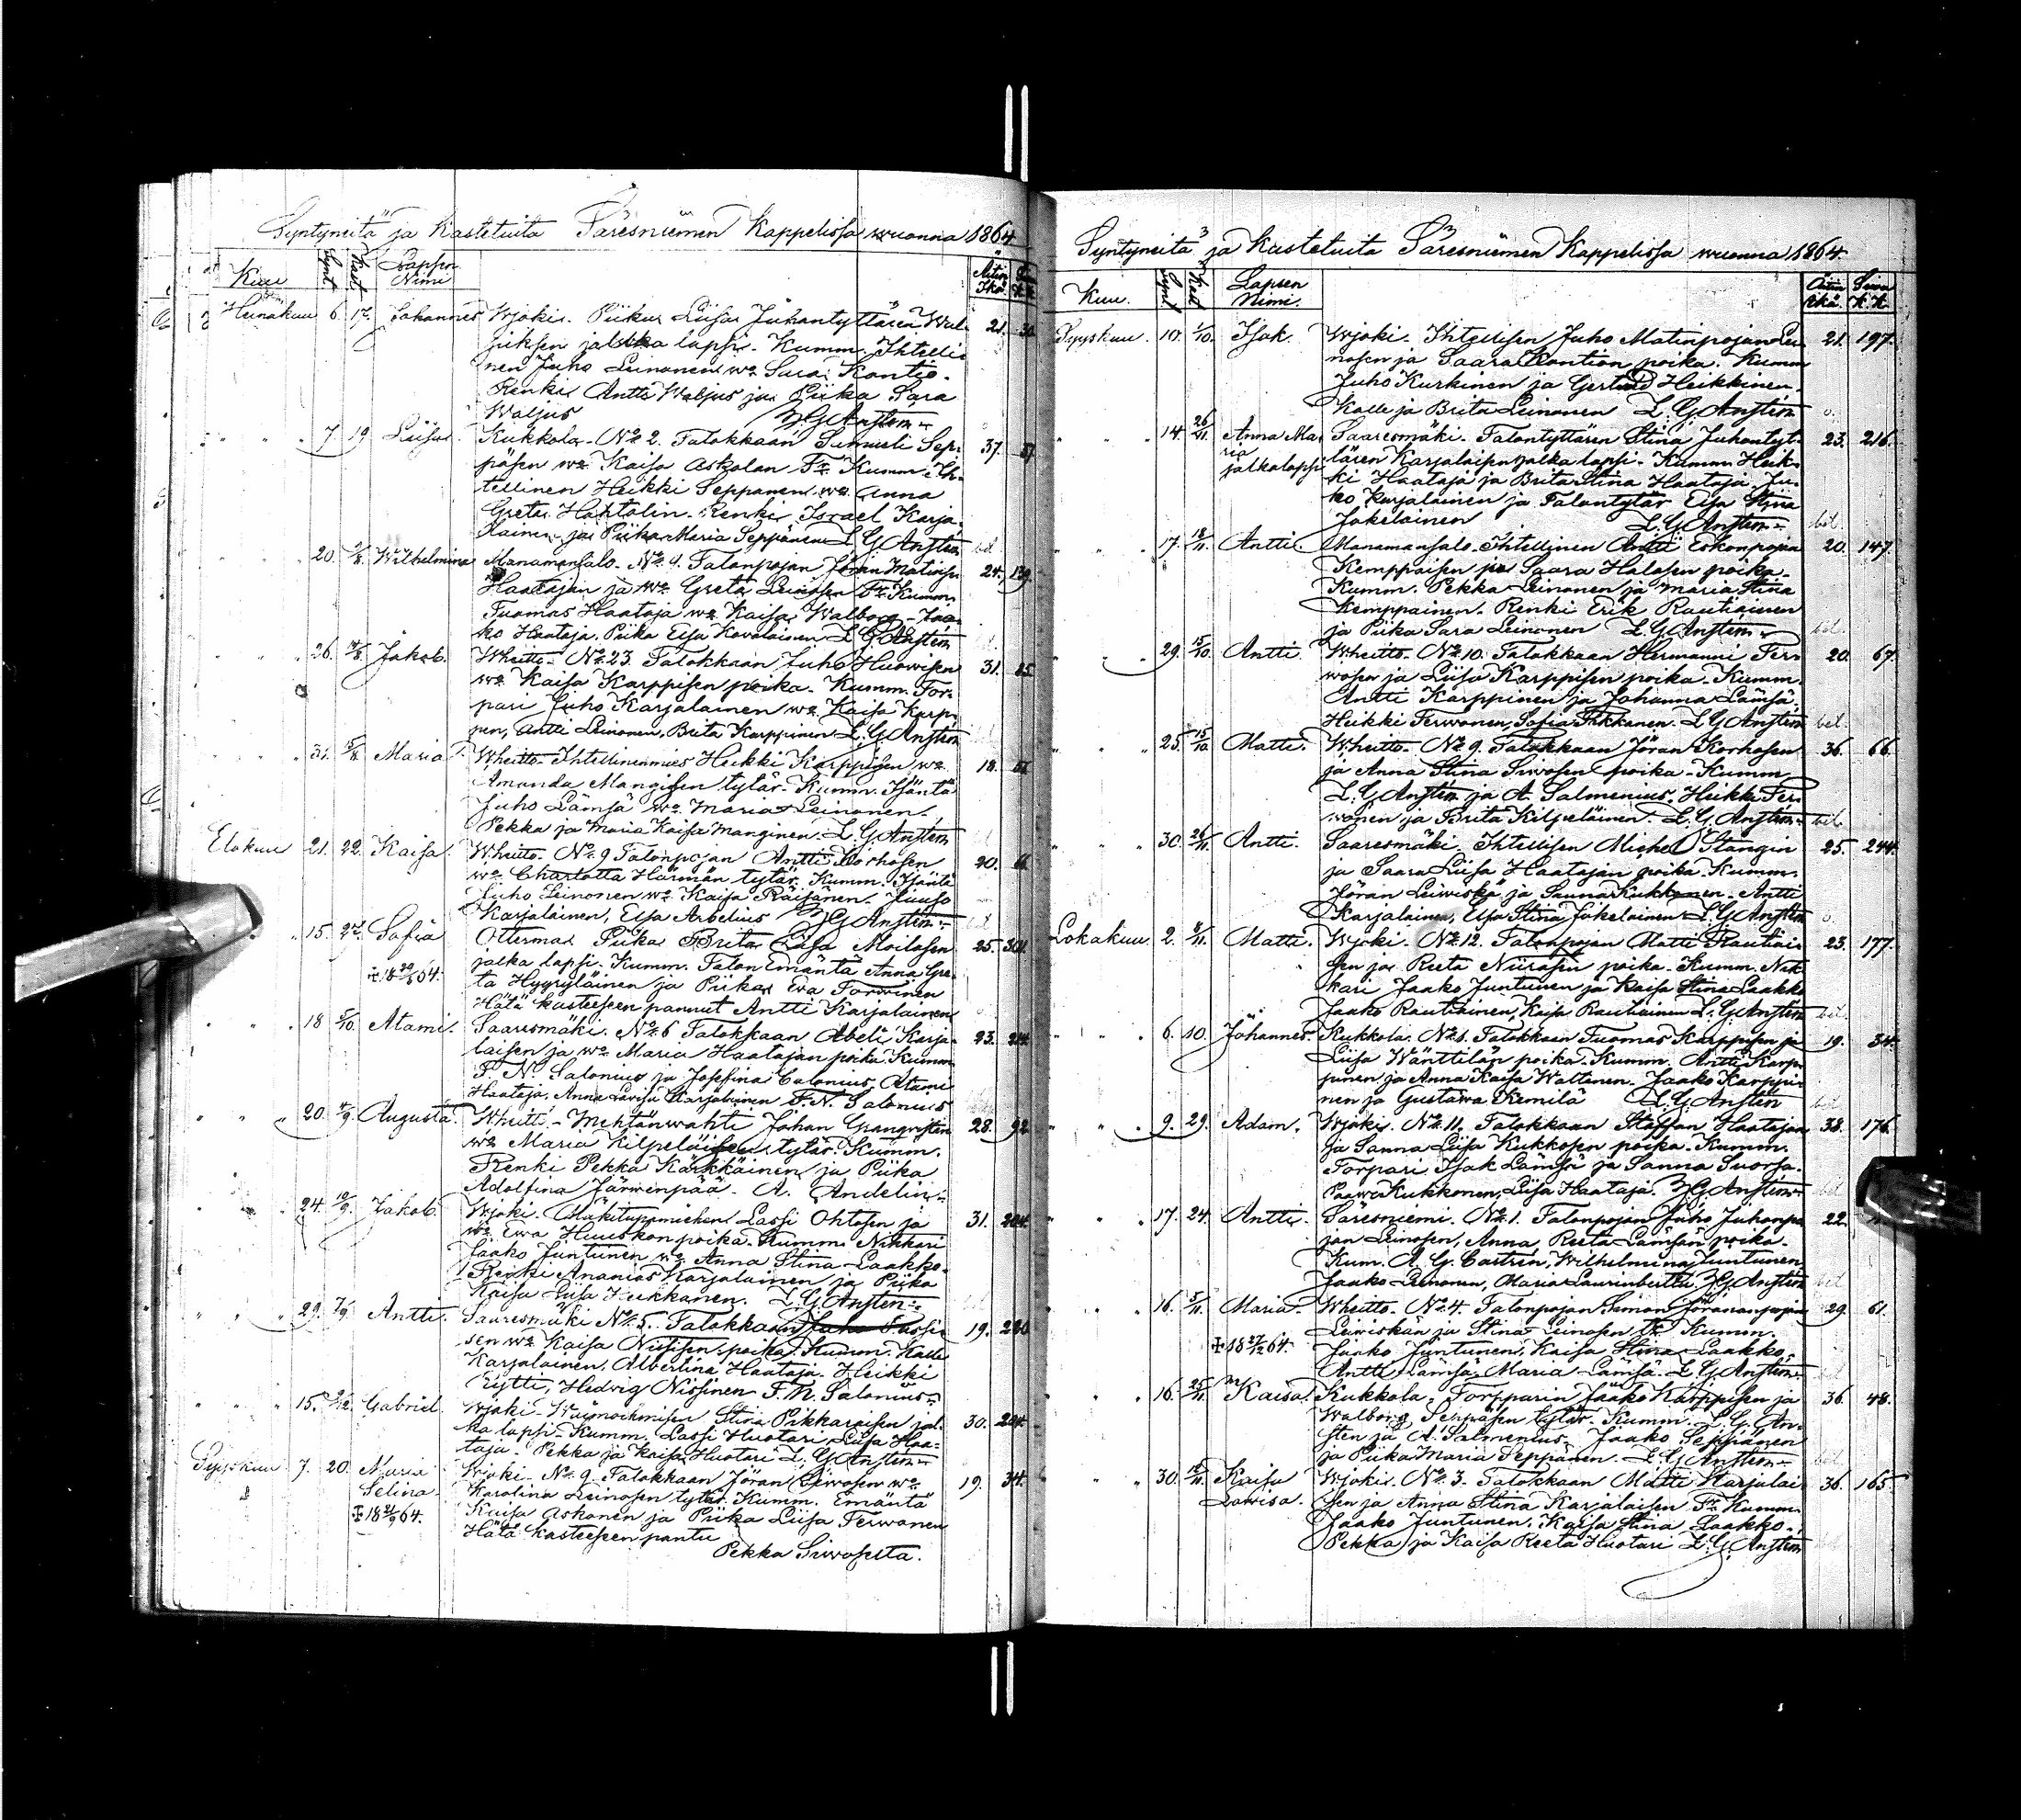 Syntyneitä ja Kastetuita Säresniemen Kappelissa wuonna 1864
Kuu Synt. Kast. Lapsen Nimi Äitin Ikä
Heinäkuu 6. 17. Johannes Wjoki. Piika Liisa Juhantyttären Wal- 21. 30
juksen jalkka lapsi. Kumm. Ihtelli-
nen Juho Leinonen wo Sara Kontio.
Renki Antti Waljus ja Piika Sara
Waljus L. G. Ansten
7. 19 Liisa. Kukkola. No 2. Talokkaan Simueli Sep- 37. 37
päsen wo Kaisa Askolan Tr. Kumm. Ih-
tellinen Heikki Seppänen wo Anna
Greta Hahtolin. Renki Israel Karja-
lainen ja Piika Maria Seppänen L. G. Ansten
20. Wilhelmina Manamansalo. No 4. Talonpojan Jöran Matinp. 24. 139.
Haatajan ja wo Greta Leinosen Tr. Kumm.
Tuomas Haataja wo Kaisa Walborg. Jaa-
ko Haataja. Piika Elsa Kovalainen L. G. Ansten
26. 14/8 Jakob. Wheitto. No 23. Talokkaan Juho Huowisen 31. 25
wo Kaisa Karppisen poika. Kumm. Tor-
pari Juho Karjalainen wo Kaisa Karp-
pnen, Antti Leinonen, Brita Karppinen L. G. Ansten
31. Maria Wheitto. Ihtellinenmies Heikki Karppisen wo 18.
Amanda Mangisen tytär. Kumm. Isäntä
Juho Lämsä wo Maria Leinonen.
Pekka ja Maria Kaisa Manginen. L. G. Ansten
Elokuu 21. 22. Kaisa. Wheitto. No 9 Talonpojan Antti Korhosen 20. 66
wo Charlotta Härmän tytär. Kumm. Isäntä
Juho Leinonen wo Kaisa Räisänen. Juuso
Karjalainen, Elsa Arbelius L. G. Ansten
15. 27. Sofia Ottermas Piika Brita Liisa Moilasen 25. 301.
jalka lapsi. Kumm. Talon Emäntä Anna Gre-
ta Hyyryläinen ja Piika Ewa Torwinen
Hätä kasteeseen pannut Antti Karjalainen
18 2/10. Atami. Saaresmäki. No 6 Talokkaan Abeli Karja- 23. 214
laisen ja wo Maria Haatajan poika. Kumm.
F. N. Salonius ja Josefina Calonius, Atami
Haataja, Anna Lovisa Karjalainen F. N. Salonius
20. 4/9. Augusta. Wheitt. - Mehtänwahti Johan Granqvisten 28. 92.
wo Maria Kilpeläisen tytär. Kumm.
Renki Pekka Kärkkäinen ja Piika
Adolfina Järwenpää. A. Andelin
24. 10/9. Jakob. Wjoki. Mäkitupamiehen Lassi Ohtosen ja 31. 204
wo Ewa Huuskon poika. Kumm. Nikkari
Jaako Juntunen wo Anna Stina Laakko.
Renki Ananias Karjalainen ja Piika
Kaisa Liisa Heikkanen. L. G. Ansten
29. 7/9 Antti. Saaresmäki No 5. Talokkaan Juho Tassi- 19. 210
sen wo Kaisa Nissisen poika. Kumm. Kalle
Karjalainen, Albertina Haataja. Heikki
Tytti, Hedwig Nissinen F. N. Salonius
15. Gabriel. Wjoki. Stina Pikkaraisen jal- 30. 224
ka lapsi. Kumm. Lassi Huotari Liisa Haa-
taja. Pekka ja Kaisa Huotari L. G. Ansten
Syyskuu 7. 20. Maria Selina. Wjoki. No 9. Talokkaan Jöran Siwosen wo 19. 34.
Karolina Leinosen tytär. Kumm. Emäntä
Kaisa Askanen ja Piika Liisa Terwonen
Hätä kasteeseen pantu
Pekka Siwoselta.
Syntyneitä ja Kastetuita Säresniemen Kappelissa wuonna 1864.
Kuu. Synt. Kast. Lapsen Nimi. Äitin Ikä. Siwu K. K.
Syyskuu. 10. 1/10. Isak. Wjoki. Ihtellisen Juho Matinpojan Lei- 21. 197.
nosen ja Saara Kontion poika. Kumm.
Juho Kurkinen ja Gertrud Heikkinen.
Kalle ja Brita Leinonen L. G. Ansten
14. 26/11. Anna Maria jalkalapsi Saaresmäki. Talontyttären Stina Juhantyt- 23. 216.
tären Karjalaisen jalka lapsi. Kumm. Heik-
ki Haataja ja Brita Stina Haataja. Ju-
ho Karjalainen ja Talontytär Elsa Stina
Jokelainen L. G. Ansten
17. 12/11. Antti. Manamansalo. Ihtellinen Antti Eskonpojan 20. 147.
Kemppaisen ja Saara Halosen poika.
Kumm. Pekka Leinonen ja Maria Stina
Kemppainen. Renki Erik Rautiainen
ja Piika Sara Leinonen L. G. Ansten
29. 15/10. Antti. Wheitto. No 10. Talokkaan Hermanni Ter- 20. 67.
wosen ja Liisa Karppisen poika. Kumm.
Antti Karppinen ja Johanna Lämsä,
Heikki Terwonen, Sofia Pikkanen. L. G. Ansten
25. 15/10 Matti. Wheitto. No 9. Talokkaan Jöran Korhosen 36. 66.
ja Anna Stina Siwosen poika. Kumm.
L. G. Ansten ja A. Salmenius. Heikki Ter-
wonen ja Brita Kilpeläinen. L. G. Ansten
30. 26/11. Antti. Saaresmäki. Ihtellisen Michel Stangin 25. 244.
ja Saara Liisa Haatajan poika. Kumm.
Jöran Leiwiskä ja Sanna Kukkonen. Antti
Karjalainen, Elsa Stina Jokelainen L. G. Ansten
Lokakuu 2. 8/11. Matti. Wjoki. No 12. Talonpojan Matti Rautiai- 23. 177.
sen ja Reeta Niirasen poika. Kumm. Nik-
kari Jaako Juntunen ja Kaisa Stina Laakko
Jaako Rautiainen, Kaisa Rautiainen L. G. Ansten
6. 10. Johannes. Kukkola. No 1. Talokkaan Tuomas Karppisen ja 19. 34.
Liisa Wänttilän poika. Kumm. Antti Karp-
pinen ja Anna Kaisa Waltanen. Jaako Karppi-
nen ja Gustawa Kemilä L. G. Ansten
9. 29. Adam. Wjoki. No 11. Talokkaan Staffan Haatajan 38. 176.
ja Sanna Liisa Kukkosen poika. Kumm.
Torpari Isak Lämsä ja Sanna Suorsa.
Paawo Kukkonen, Liisa Haataja. L. G. Ansten
17. 24. Antti. Säresniemi. No 1. Talonpojan Juho Juhanpo- 22.
jan Leinosen, Anna Reeta Lämsän poika.
Kum. A. G. Castrén, Wilhelmina Juntunen
Jaako Leinonen, Maria L. G. Ansten
16. 5/11. Maria. Wheitto. No 4. Talonpojan Simon Jörananpojan 29. 61.
Leiwiskän ja Stina Leinosen Tr. Kumm.
Jaako Juntunen, Kaisa Stina Laakko,
Antti Lämsä, Maria Lämsä. L. G. Ansten
16. 25/11 Kaisa. Kukkola. Torpparin Jaako Karppisen ja 36. 48.
Walborg Seppäsen tytär. Kumm. L. G. An-
sten ja A. Salmenius. Jaako Seppänen
ja Piika Maria Seppänen. L. G. Ansten
30. Kaisa Lowisa. Wjoki. No 3. Talokkaan Matti Karjalai- 36. 165.
sen ja Anna Stina Karjalaisen Tr. Kumm.
Jaako Juntunen, Kaisa Stina Laakko.
Pekka ja Kaisa Reeta Huotari L. G. Ansten